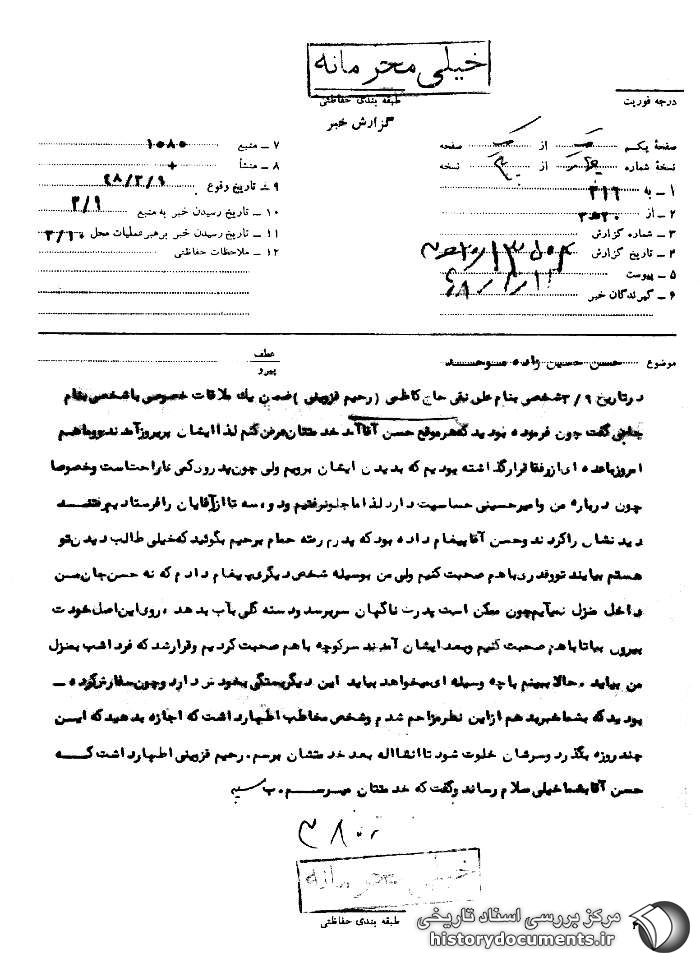 خیلی محرمانه
طبقه بندی حفاظتی
گزارش خبر
درجه فوریت
صفحهٔ یکم از صفحه
نسخهٔ شماره از نسخه
۱ ـ به ۳۱۶
۲ ـ از
۳ ـ شماره گزارش
۴ ـ تاریخ گزارش
۵ ـ پیوست
۶ ـ گیرندگان خبر
۷ ـ منبع ۱۵۸۵
۸ ـ منشأ +
۹ ـ تاریخ وقوع ۴۸/۳/۹
۱۰ ـ تاریخ رسیدن خبر به منبع ۳/۹
۱۱ ـ تاریخ رسیدن خبر برهبر عملیات محل ۳/۱۰
۱۲ ـ ملاحظات حفاظتی
موضوع حسن حسین زاده موحد
عطف
پیرو
در تاریخ ۳/۹ شخصی بنام علی نقی حاج کاظمی (رحیم قزوینی) ضمن یک ملاقات خصوصی با شخصی بنام
گفت چون فرموده بودید که هر موقع حسن آقا آمد خدمتتان عرض کنم لذا ایشان پریروز آمدند و ما هم
امروز با عده ای از رفقا قرار گذاشته بودیم که بدیدن ایشان برویم ولی چون پدر وی کمی ناراحت است و خصوصا
چون درباره من و امیرحسینی حساسیت دارد لذا ما جلو نرفتیم و دو، سه تا از آقایان را فرستادیم رفتند
دیدنشان را کردند و حسن آقا پیغام داده بود که پدرم رفته حمام برحیم بگوئید که خیلی طالب دیدن تو
هستم بیایند تو و قدری باهم صحبت کنیم ولی من بوسیله شخص دیگری پیغام دادم که نه حسن جان من
داخل منزل نمیآیم چون ممکن است پدرت ناگهان سر برسد و دسته گلی بآب بدهد، روی این اصل خودت
بیرون بیا تا باهم صحبت کنیم و بعد ایشان آمدند سر کوچه باهم صحبت کردیم و قرار شد که فردا شب بمنزل
من بیاید. حالا ببینم با چه وسیله ای میخواهد بیاید این دیگر بستگی بخودش دارد و چون سفارش کرده ـ
بودید که بشما خبر بدهم از این نظر مزاحم شدم و شخص مخاطب اظهار داشت که اجازه بدهید که این
چند روزه بگذرد و سرشان خلوت شود تا انشااله بعد خدمتشان برسم. رحیم قزوینی اظهار داشت که
حسن آقا بشما خیلی سلام رساند و گفت که خدمتتان میرسم.
خیلی محرمانه
طبقه بندی حفاظتی
مرکز بررسی اسناد تاریخی
historydocuments.ir